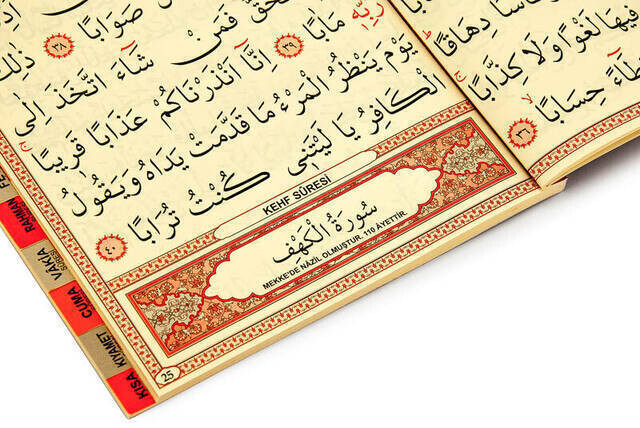 دِهَاقًا
فِيهَا لَغْوًا وَلَا كِذَّابًا
حِسَابًا ٣٦
صَوَابًا
٣٨ ذٰلِكَ
فَمَنْ شَٓاءَ اتَّخَذَ اِلٰى
رَبِّهٖ مَاٰبًا ٣٩ اِنَّٓا اَنْذَرْنَاكُمْ عَذَابًا قَرِيبًا
يَوْمَ يَنْظُرُ الْمَرْءُ مَا قَدَّمَتْ يَدَاهُ وَيَقُولُ
الْكَافِرُ يَا لَيْتَنٖى كُنْتُ تُرَابًا ٤٠
KEHF SÛRESİ
سُورَةُ الْكَهْفِ
MEKKE'DE NAZİL OLMUŞTUR. 110 ÂYETTİR.
25
RAHMAN
VAKIA
SÛRESİ
CUMA
KIYAMET
KISA